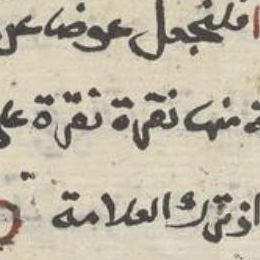 فلنجعل عوضا عن
منها نقرة نقرة على
اذ نترك العلامة